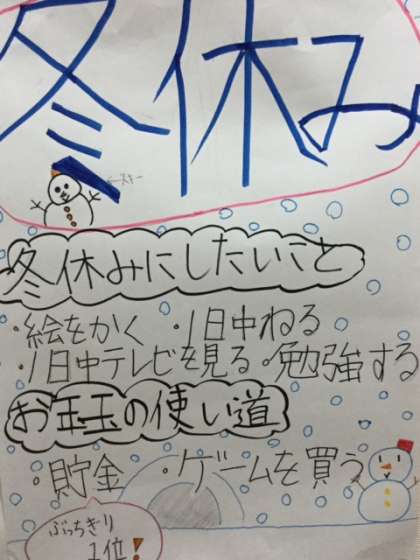 冬休み
←スキー
冬休みにしたいこと
・絵をかく ・1日中ねる
・1日中テレビを見る ・勉強する
お年玉の使い道
・貯金 ・ゲームを買う
ぶっちぎり
1位!